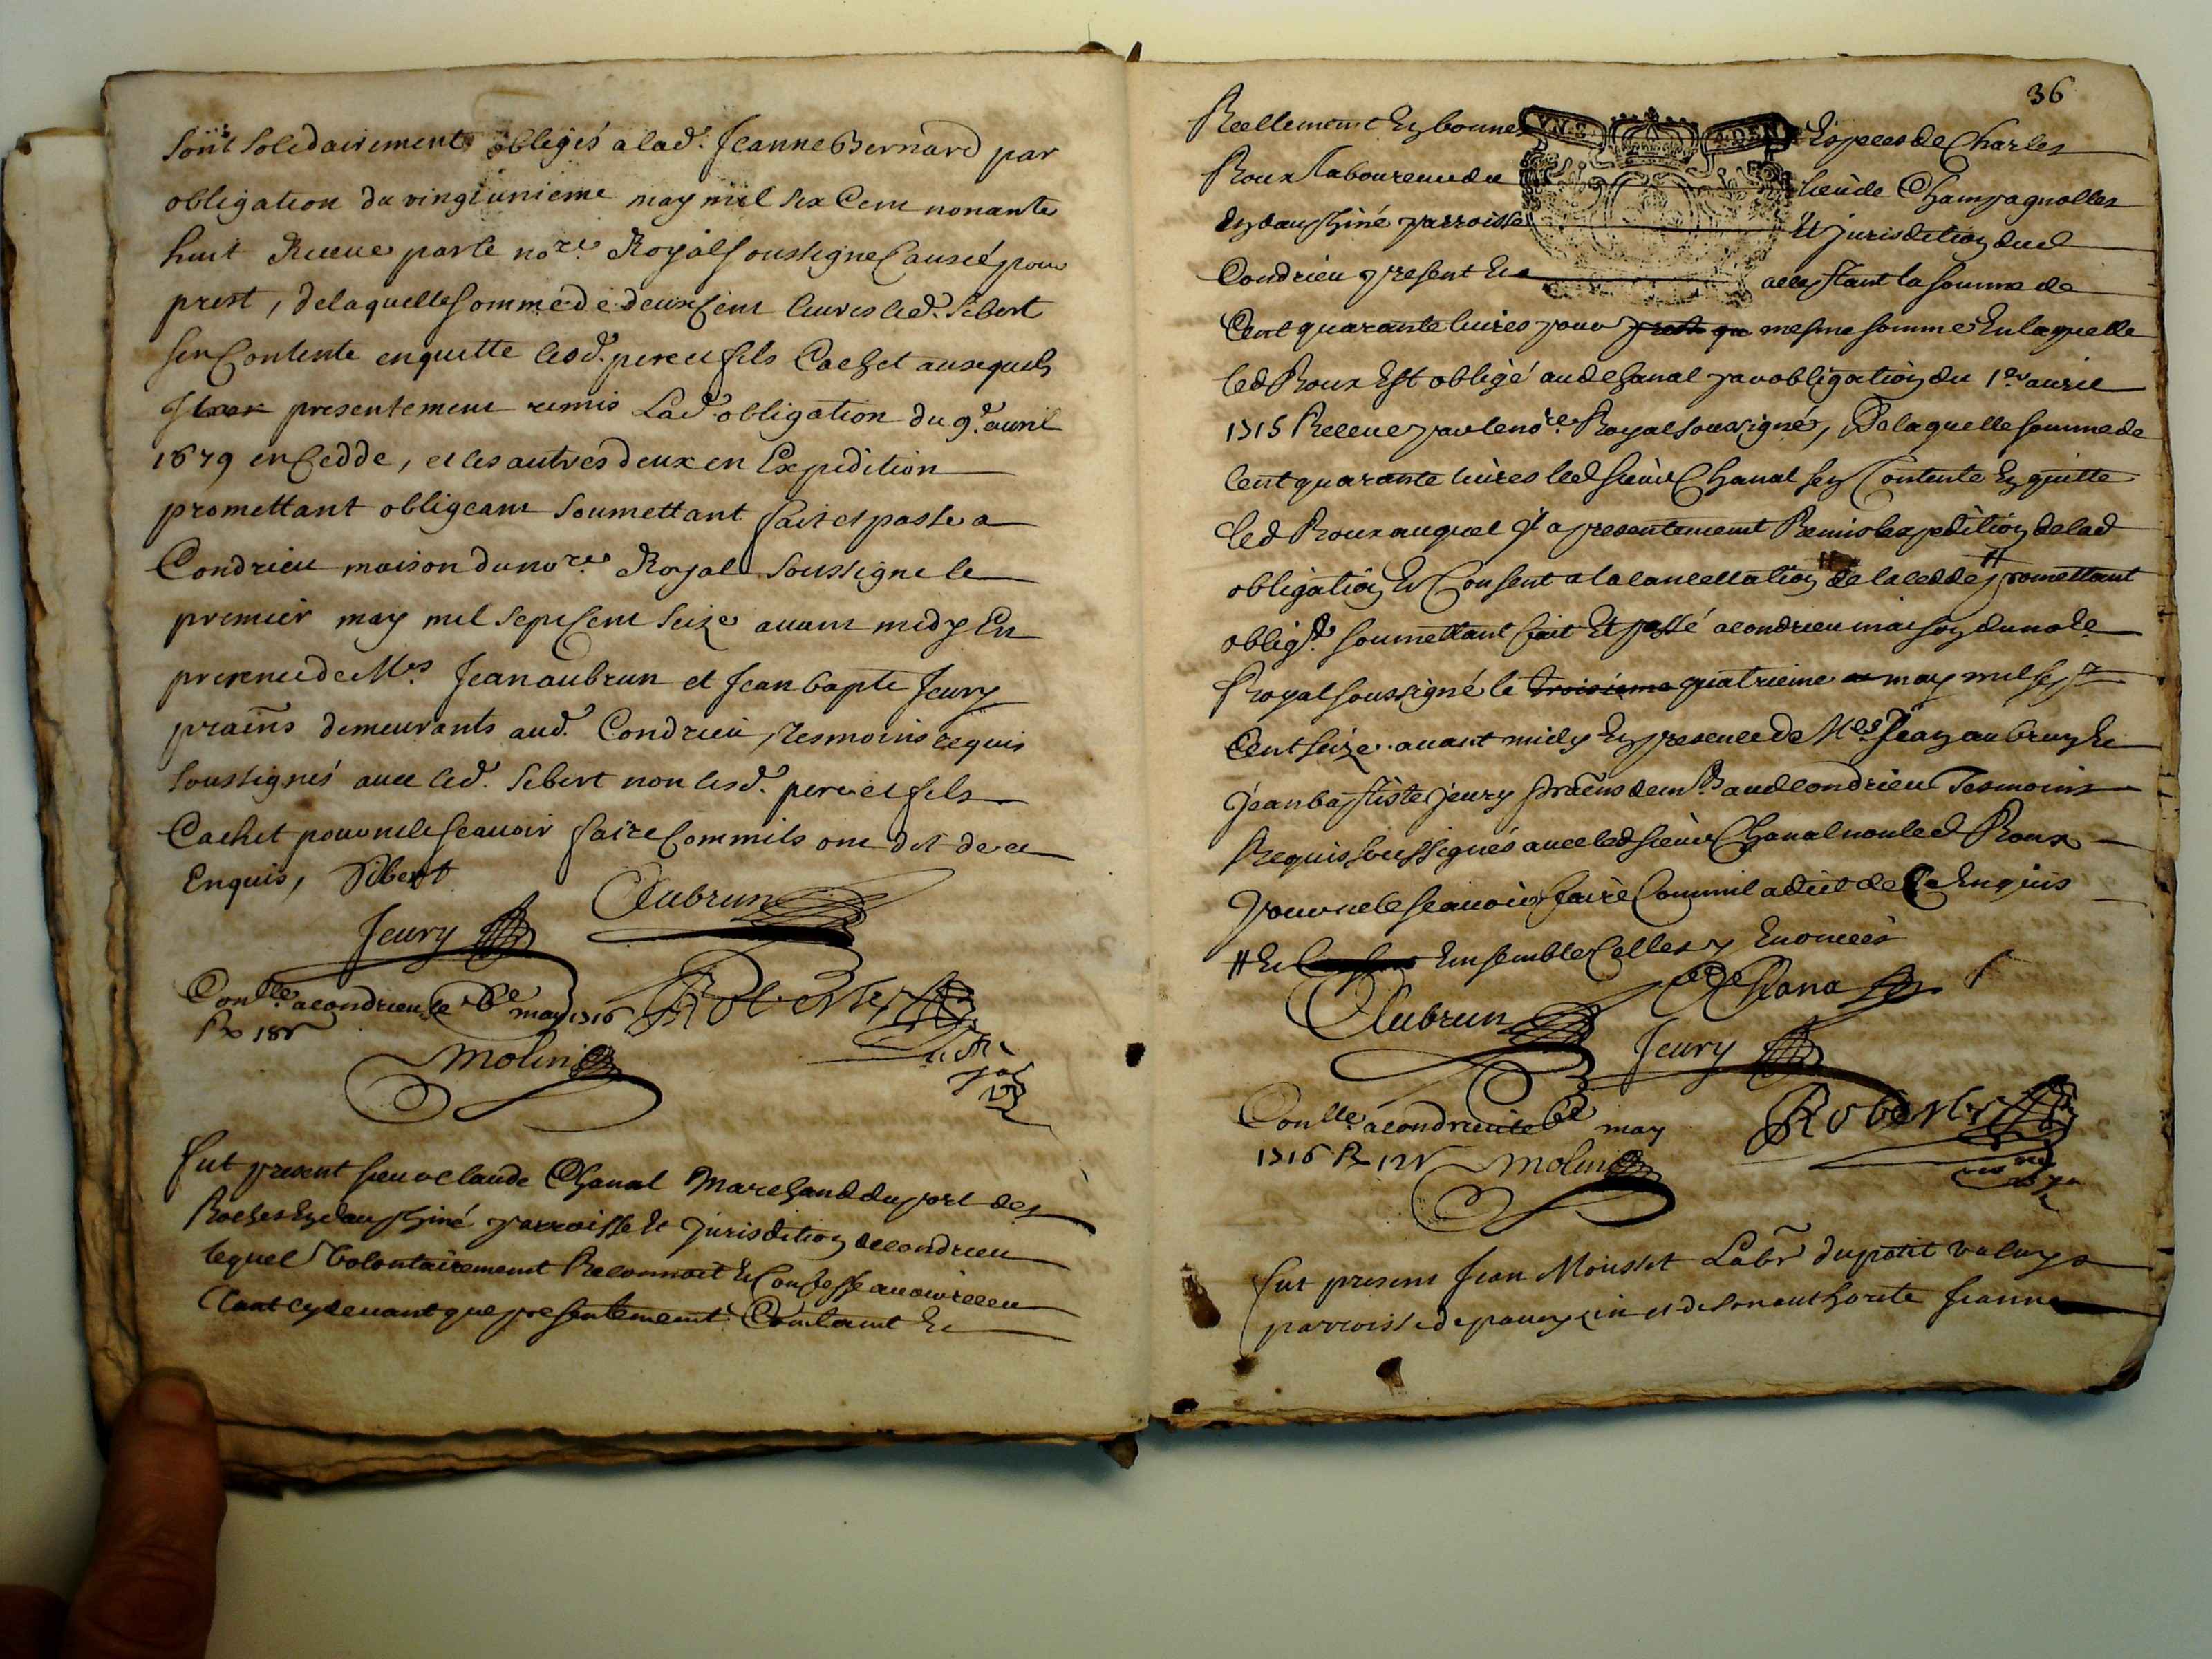 sont solidairement obligés a lad. Jeanne Bernard par
obligation du vingtunieme may mil six Cent nonante
huit Receue par le nore. Royal soussigné Causée pour
prest, de laquelle somme de deux Cent livres led. Sibert
sen Contente en quitte lesd. pere et fils Cachet ausquels
Il a presentement remis Lad. obligation du 9e. avril
1679 en Cedde, et les autres deux en Expedition
promettant obligeant soumettant fait et passé a
Condrieu maison du nore. Royal soussigné le
premier may mil sept Cent seize avant midy En
presence de Mes. Jean aubrun et Jean bapte Jeury
pratins demeurants aud. Condrieu, tesmoins requis
soussignés avec led. Sibert non lesd. pere et fils
Cachet pour ne le scavoir faire Comm ils ont dit de ce
Enquis, Sibert
Aubrun
Jeury
Conlle. a condrieu le 6e may 1716 Robert
Rx 18s
Molin
fut present sieur claude Chanal Marchand du port des
Roches En dauphiné parroisse Et Jurisdition de condrieu
lequel volontairement Reconnoit Et Confesse avoir receu
tant cy devant que presentement Contant Et
36
Reellement En bonnes Especes de Charles
Roux laboureur du lieu de Champagnolles
En dauphiné parroisse Et jurisdition dud
Condrieu present Et acceptant la somme de
Cent quarante livres pour prest qu mesme somme En laquelle
led Roux Est obligé aud chanal par obligation du 1er avril
1715 Receue par le nore. Royal soussigné, De laquelle somme de
Cent quarante livres led sieur Chanal sen Contente En quitte
led Roux auquel Il a presentement Remis lexpedition de lad
obligation Et Consent a la cancellation de la cedde # promettant
obligt. soumettant fait Et passé a condrieu maison du nore
Royal soussigné le troisieme quatrieme may mil sept
Cent seize avant midy En presence de Mes Jean aubrun Et
Jean baptiste jeury pratins demts aud condrieu Tesmoins
Requis soussignés avec led sieur Chanal non led Roux
pour ne le scavoir faire Comm il a dict de Ce Enquis
# Et Ensemble Celles y Enoncées
Chana
Aubrun
Jeury
Conlle. a condrieu le 6e may Robert
1716 R 12s Molin
fut present Jean Mousset Labr du petit
parroisse de et de son authorite Jeanne